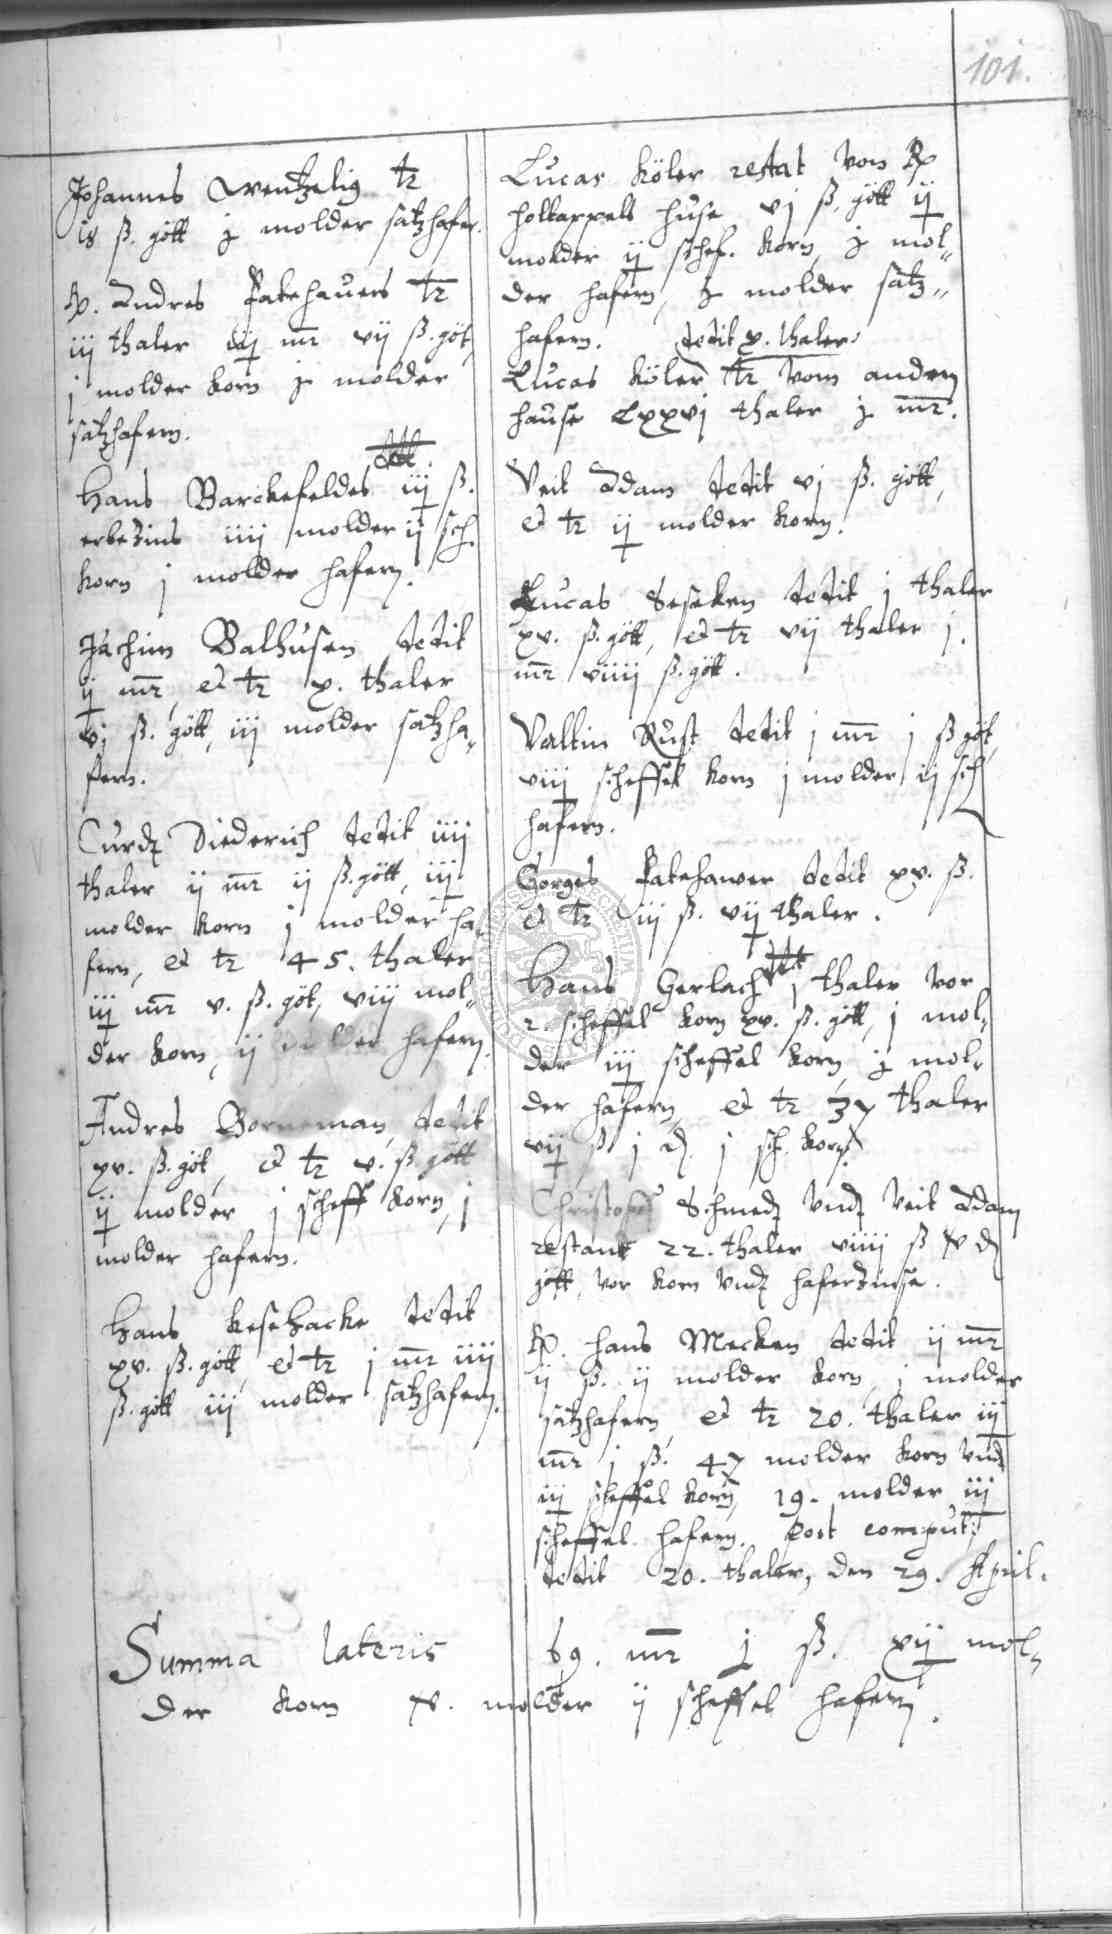 101.
Johannes Wentzelig tr
is ß. gött j molder satzhafer.
Rp. Andres Fatehauers tr
iij thaler iij mr vij ß. göt,
j molder korn j molder
satzhafern.
Hans Barckefeldes iij ß.
erbezins iiij molder ij sch.
korn j molder hafern.
Jachim Balhusen dedit
ij mr, et tr x. thaler
vj ß. gött, iij molder satzha„
fern.
Curdt Diederich dedit iiij
thaler ij mr ij ß. gött, iij
molder korn j molder ha„
fern, et tr 45. thaler
iij mr v. ß. göt, viij mol„
der korn, ij molder hafern.
Andres Borneman dedit
xv. ß. göt, et tr v. ß gött
ij molder j scheff korn, j
molder hafern.
Hans Kesehacke dedit
xv. ß. gött, et tr j mr iiij
ß. gött iij molder satzhafern.
Lucas Köler restat von Rp
holtappels huse vj ß. gött ij
molder ij schef. korn, j mol„
der hafern, j molder satz„
hafern. dedit x. thaler
Lucas Köler tr vom andern
hause Lxxvj thaler j mr.
Veit Adam dedit vj ß. gött,
et tr ij molder korn.
Lucas Seseken dedit j thaler
xv. ß. gött, et tr vij thaler j.
mr viiij ß. gött.
Valtin Rust dedit j mr j ß göt,
viij scheffel korn j molder ij sch
hafern.
Gorges Fatehawer dedit xv. ß.
et tr iij ß. vij thaler.
Hans Gerlach j thaler vor
2. scheffel korn xv. ß. gött, j mol„
der iij scheffel korn j mol„
der hafern et tr 37 thaler
vij ß j d. j sch. korn.
Christoff Schmedt vndt Veit Adam
restant 22. thaler viiij ß iv d
gött, vor korn vndt haferzinse.
Rp. Hans Mecken dedit ij mr
ij ß. ij molder korn, j molder
satzhafern, et tr 20. thaler iij
mr j ß. 47 molder korn vndt
iij scheffel korn, 19. molder iij
scheffel hafern. post comput:
dedit 20. thaler, den 29. April.
Summa lateris 69. mr j ß. xij mol„
der korn iv. molder ij scheffel hafern.